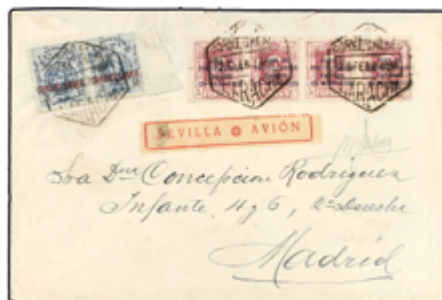 LARACHE
LARACHE
SEVILLA AVIÓN
Sra Dña Concepcion Rodriguez
Infante, 4 y 6, 2º Derecha
Madrid